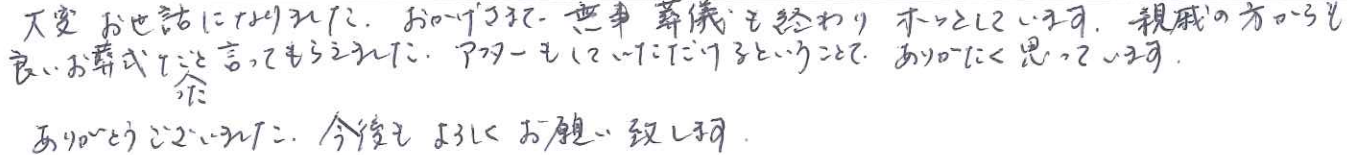 大変 お世話になりました. おかげさまで 無事 葬儀も終わり ホッとしています. 親戚の方からも
良いお葬式だったと言ってもらえました. アフターもしていただけるということで. ありがたく思っています.
ありがとうございました. 今後も よろしくお願い致します.